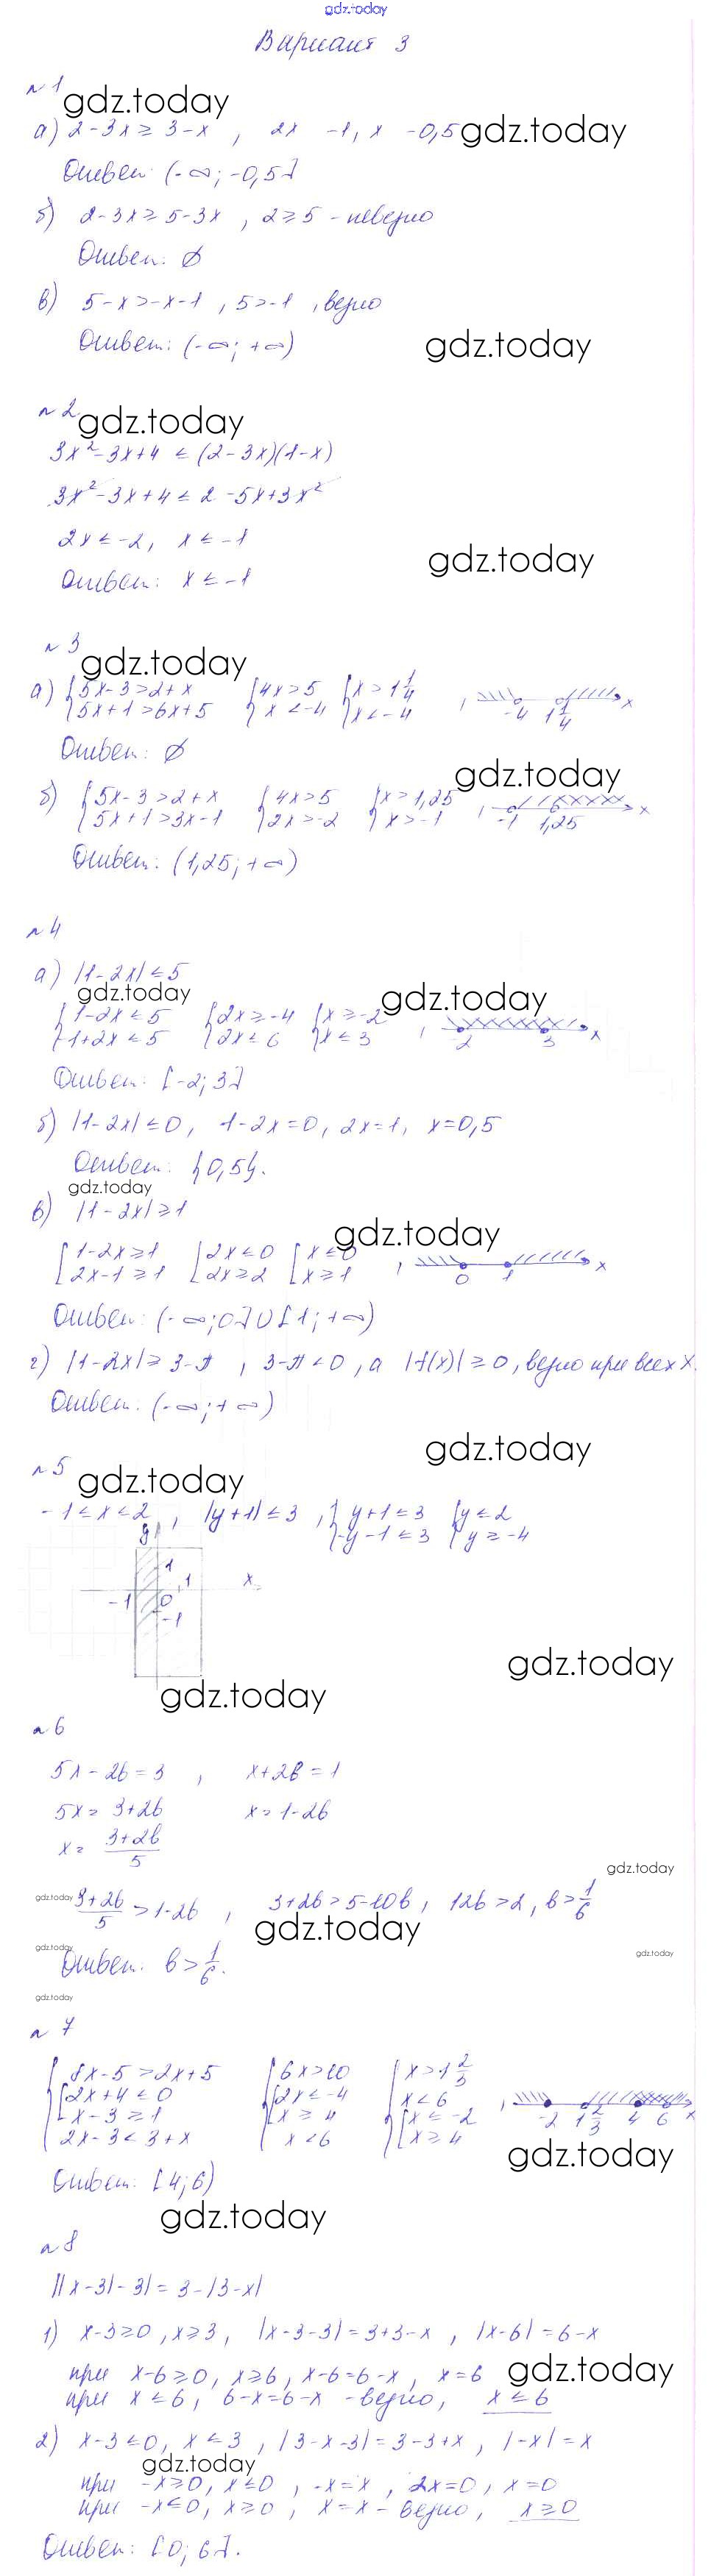 gdz.today
Вариант 3
№1
gdz.today
а) 2-3x ≥ 3-x , 2x -1, x -0,5 gdz.today
Ответ: (-∞; -0,5]
б) 2-3x ≥ 5-3x , 2 ≥ 5 - неверно
Ответ: ∅
в) 5-x > -x-1 , 5 > -1 , верно
Ответ: (-∞; +∞) gdz.today
№2
gdz.today
3x²-3x+4 ≤ (2-3x)(1-x)
3x²-3x+4 ≤ 2-5x+3x²
2x ≤ -2, x ≤ -1
gdz.today
Ответ: x ≤ -1
№3
gdz.today
а) {5x-3>2+x {4x>5 {x>1 1/4
{5x+1>6x+5 {x<-4 {x<-4 -4 1 1/4 x
Ответ: ∅
gdz.today
б) {5x-3>2+x {4x>5 {x>1,25
{5x+1>3x-1 {2x>-2 {x>-1 -1 1,25 x
Ответ: (1,25; +∞)
№4
а) |1-2x| ≤ 5
gdz.today gdz.today
{1-2x ≤ 5 {2x ≥ -4 {x ≥ -2
{-1+2x ≤ 5 {2x ≤ 6 {x ≤ 3 -2 3 x
Ответ: [-2; 3]
б) |1-2x| ≤ 0, 1-2x=0, 2x=1, x=0,5
Ответ: {0,5}.
gdz.today
в) |1-2x| ≥ 1
gdz.today
[1-2x ≥ 1 [2x ≤ 0 [x ≤ 0
[2x-1 ≥ 1 [2x ≥ 2 [x ≥ 1 0 1 x
Ответ: (-∞; 0] ∪ [1; +∞)
г) |1-2x| ≥ 3-π , 3-π < 0 , а |f(x)| ≥ 0, верно при всех x.
Ответ: (-∞; +∞)
gdz.today
№5
gdz.today
-1 ≤ x ≤ 2 , |y+1| ≤ 3 , {y+1 ≤ 3 {y ≤ 2
{-y-1 ≤ 3 {y ≥ -4
y
1
1 x
-1 0
-1
gdz.today
gdz.today
№6
5x-2b=3 , x+2b=1
5x = 3+2b x = 1-2b
x = (3+2b)/5
gdz.today
gdz.today (3+2b)/5 > 1-2b , 3+2b > 5-10b , 12b > 2 , b > 1/6
gdz.today
gdz.today gdz.today
Ответ: b > 1/6.
gdz.today
№7
{8x-5>2x+5 {6x>10 {x>1 2/3
{[2x+4 ≤ 0 {[2x ≤ -4 {x<6
{[x-3 ≥ 1 {[x ≥ 4 {[x ≤ -2 -2 1 2/3 4 6 x
{2x-3<3+x {x<6 {[x ≥ 4
gdz.today
Ответ: [4; 6)
gdz.today
№8
||x-3|-3| = 3-|3-x|
1) x-3 ≥ 0, x ≥ 3, |x-3-3| = 3+3-x , |x-6| = 6-x
при x-6 ≥ 0, x ≥ 6, x-6=6-x, x=6 gdz.today
при x ≤ 6, 6-x=6-x - верно, x ≤ 6
2) x-3 ≤ 0, x ≤ 3 , |3-x-3| = 3-3+x , |-x| = x
gdz.today
при -x ≥ 0, x ≤ 0 , -x=x , 2x=0, x=0
при -x ≤ 0, x ≥ 0 , x=x - верно, x ≥ 0
Ответ: [0; 6].